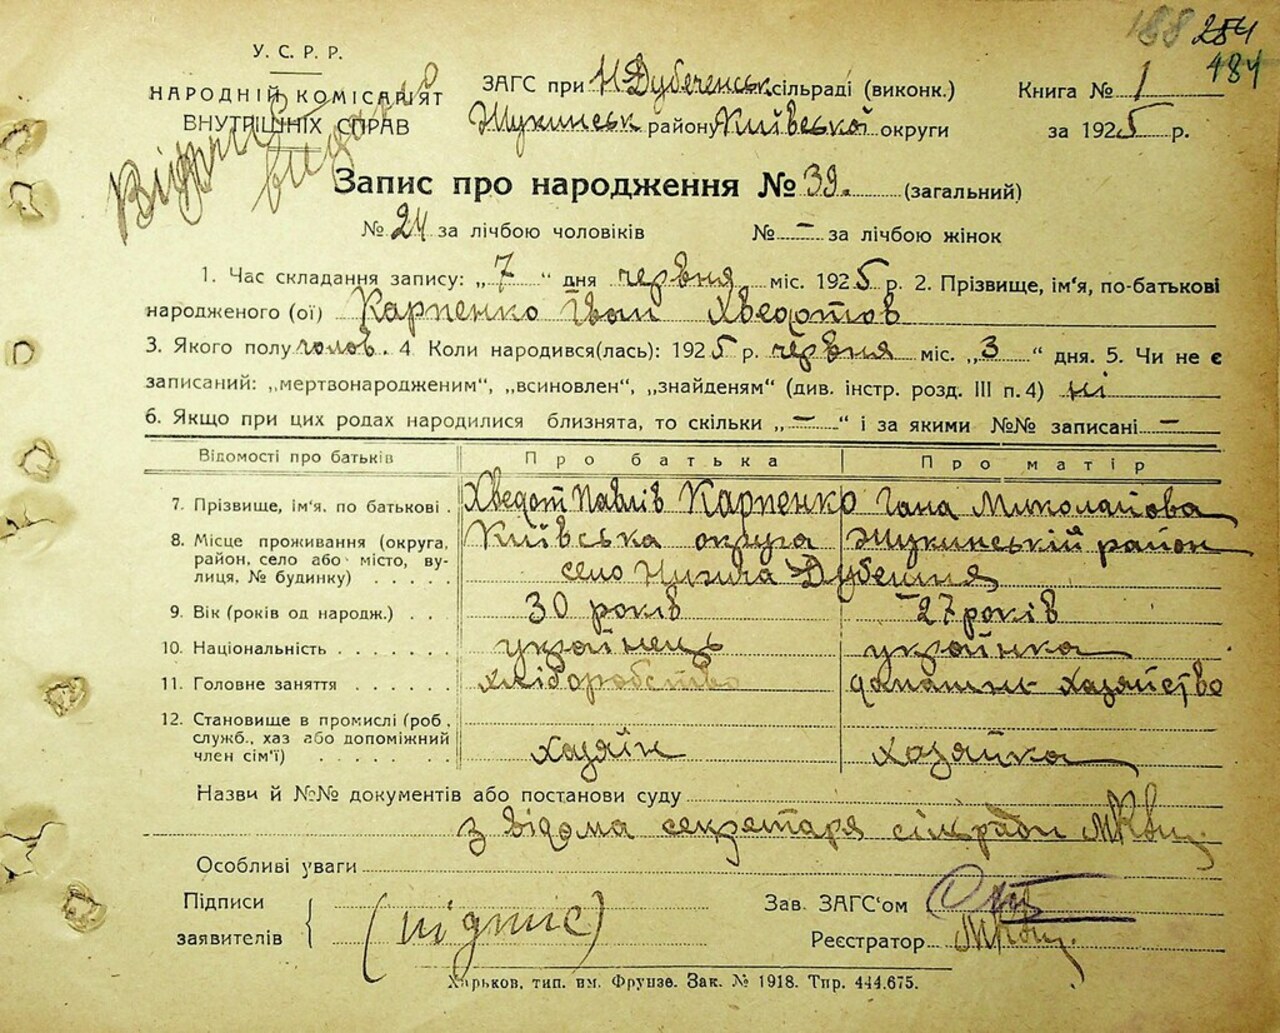 188 254
У. С. Р. Р.
484
НАРОДНІЙ КОМІСАРІЯТ
ВНУТРІШНІХ СПРАВ
ЗАГС при Н Дубеченськ. сільраді (виконк.)
Жукинськ району Київської округи
Книга № 1
за 1925 р.
видано
Запис про народження № 39. (загальний)
№ 24 за лічбою чоловіків № – за лічбою жінок
1. Час складання запису: „7“ дня червня міс. 1925 р. 2. Прізвище, ім'я, по-батькові
народженого (ої) Карпенко Іван Хведотов
3. Якого полу чолов. 4 Коли народився(лась): 1925 р. червня міс. „3“ дня. 5. Чи не є
записаний: „мертвонародженим“, „всиновлен“, „знайденям“ (див. інстр. розд. III п. 4) ні
6. Якщо при цих родах народилися близнята, то скільки „–“ і за якими №№ записані –
Відомості про батьків Про батька Про матір
7. Прізвище, ім'я, по батькові . Хведот Павлів Карпенко Гана Миколайова
8. Місце проживання (округа, район, село або місто, вулиця, № будинку) . . . . . Київська округа Жукинській район
село Нижча Дубешня
9. Вік (років од народж.) . . . 30 років 27 років
10. Національність . . . . . . . українець українка
11. Головне заняття . . . . . . хліборобство домашнє хазяйство
12. Становище в промислі (роб., служб., хаз або допоміжний член сім'ї) . . . . . . . хазяїн хозяйка
Назви й №№ документів або постанови суду
з відома секретаря сільради
Особливі уваги
Підписи
заявителів (підпис)
Зав. ЗАГС'ом
Реєстратор
Харьков, тип. им. Фрунзе. Зак. № 1918. Тир. 444.675.